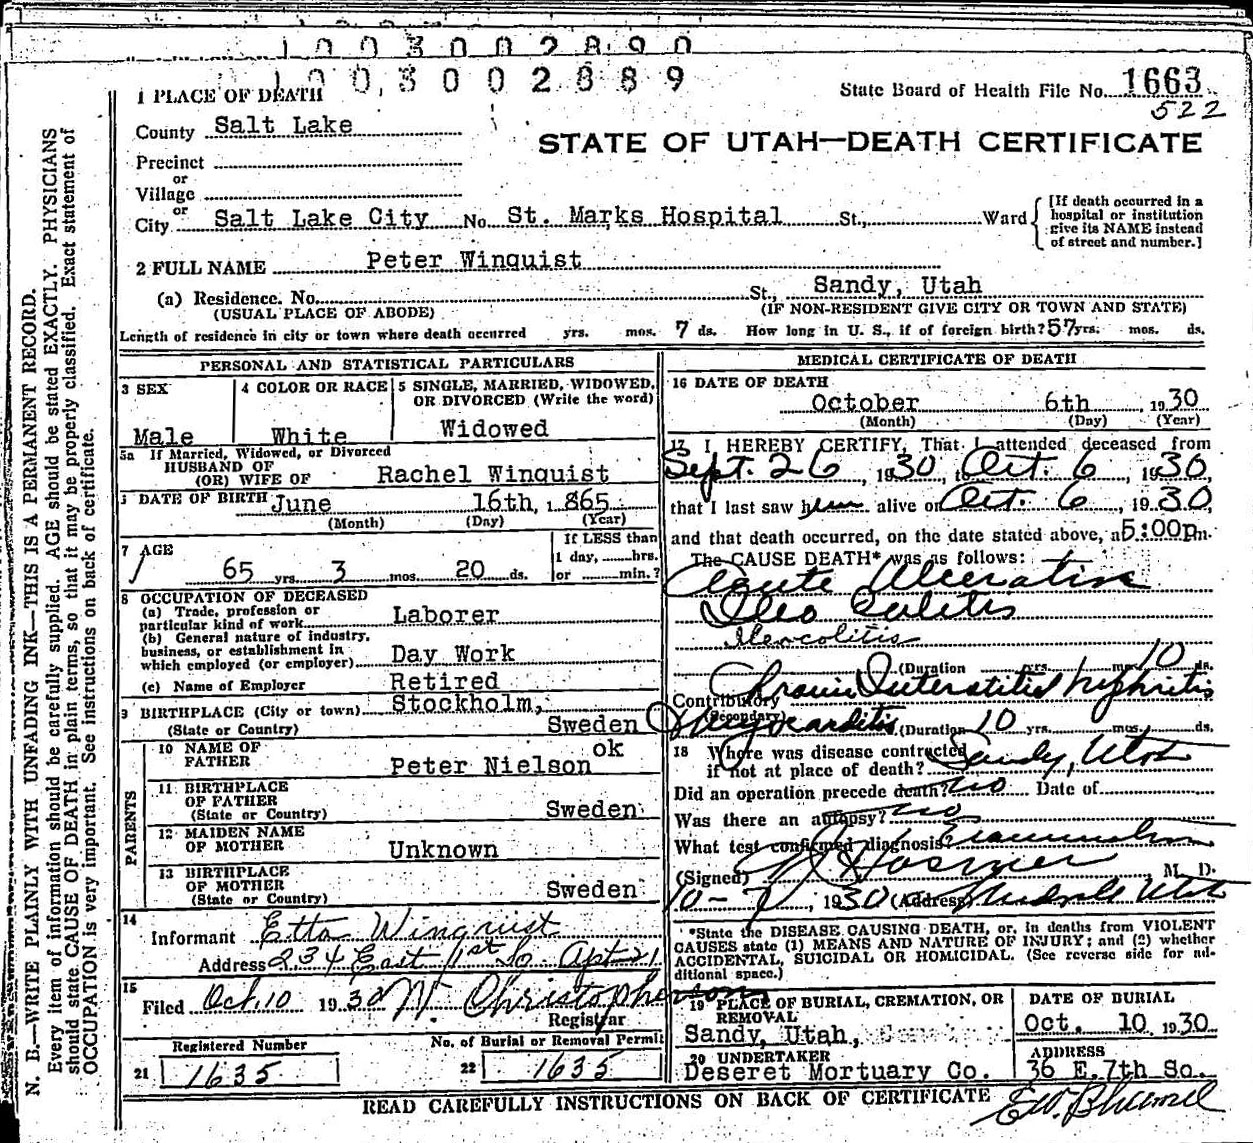 1003002890
1003002889
1 PLACE OF DEATH
State Board of Health File No. 1663
522
County Salt Lake
STATE OF UTAH—DEATH CERTIFICATE
Precinct
or
Village
or
City Salt Lake City No. St. Marks Hospital St., Ward
[If death occurred in a hospital or institution give its NAME instead of street and number.]
2 FULL NAME Peter Winquist
(a) Residence. No. St., Sandy, Utah
(USUAL PLACE OF ABODE) (IF NON-RESIDENT GIVE CITY OR TOWN AND STATE)
Length of residence in city or town where death occurred yrs. mos. 7 ds. How long in U. S., if of foreign birth? 57 yrs. mos. ds.
PERSONAL AND STATISTICAL PARTICULARS
3 SEX
Male
4 COLOR OR RACE
White
5 SINGLE, MARRIED, WIDOWED, OR DIVORCED (Write the word)
Widowed
5a If Married, Widowed, or Divorced
HUSBAND OF
(OR) WIFE OF Rachel Winquist
DATE OF BIRTH June 16th, 1865
(Month) (Day) (Year)
7 AGE
65 yrs. 3 mos. 20 ds.
If LESS than
1 day, hrs.
or min.?
8 OCCUPATION OF DECEASED
(a) Trade, profession or
particular kind of work Laborer
(b) General nature of industry,
business, or establishment in
which employed (or employer) Day Work
(c) Name of Employer Retired
9 BIRTHPLACE (City or town) Stockholm,
(State or Country) Sweden
PARENTS
10 NAME OF
FATHER Peter Nielson ok
11 BIRTHPLACE
OF FATHER
(State or Country) Sweden
12 MAIDEN NAME
OF MOTHER Unknown
13 BIRTHPLACE
OF MOTHER
(State or Country) Sweden
14
Informant Etta Winquist
Address 234 East 1st So Apt 21
15
Filed Oct. 10 1930 W. Christopherson
Registrar
Registered Number
21 1635
No. of Burial or Removal Permit
22 1635
MEDICAL CERTIFICATE OF DEATH
16 DATE OF DEATH
October 6th, 1930
(Month) (Day) (Year)
17 I HEREBY CERTIFY, That I attended deceased from
Sept. 26, 1930, to Oct. 6, 1930,
that I last saw him alive on Oct. 6, 1930,
and that death occurred, on the date stated above, at 5:00 p.m.
The CAUSE DEATH* was as follows:
Acute Ulcerative
Ileo Colitis
Ileocolitis
(Duration yrs. mos. 10 ds.
Chronic Interstitial Nephritis
Contributory
(Secondary)
Myocarditis (Duration 10 yrs. mos. ds.
18 Where was disease contracted
if not at place of death? Sandy, Utah
Did an operation precede death? no Date of
Was there an autopsy? no
What test confirmed diagnosis? Examination
(Signed) Hosmer M. D.
10-7, 1930 (Address) Midvale Utah
*State the DISEASE CAUSING DEATH, or, in deaths from VIOLENT
CAUSES state (1) MEANS AND NATURE OF INJURY; and (2) whether
ACCIDENTAL, SUICIDAL OR HOMICIDAL. (See reverse side for ad-
ditional space.)
19 PLACE OF BURIAL, CREMATION, OR
REMOVAL
Sandy, Utah,
DATE OF BURIAL
Oct. 10 1930
20 UNDERTAKER
Deseret Mortuary Co.
ADDRESS
36 E. 7th So.
READ CAREFULLY INSTRUCTIONS ON BACK OF CERTIFICATE
N. B.—WRITE PLAINLY WITH UNFADING INK—THIS IS A PERMANENT RECORD.
Every item of information should be carefully supplied. AGE should be stated EXACTLY. PHYSICIANS
should state CAUSE OF DEATH in plain terms, so that it may be properly classified. Exact statement of
OCCUPATION is very important. See instructions on back of certificate.